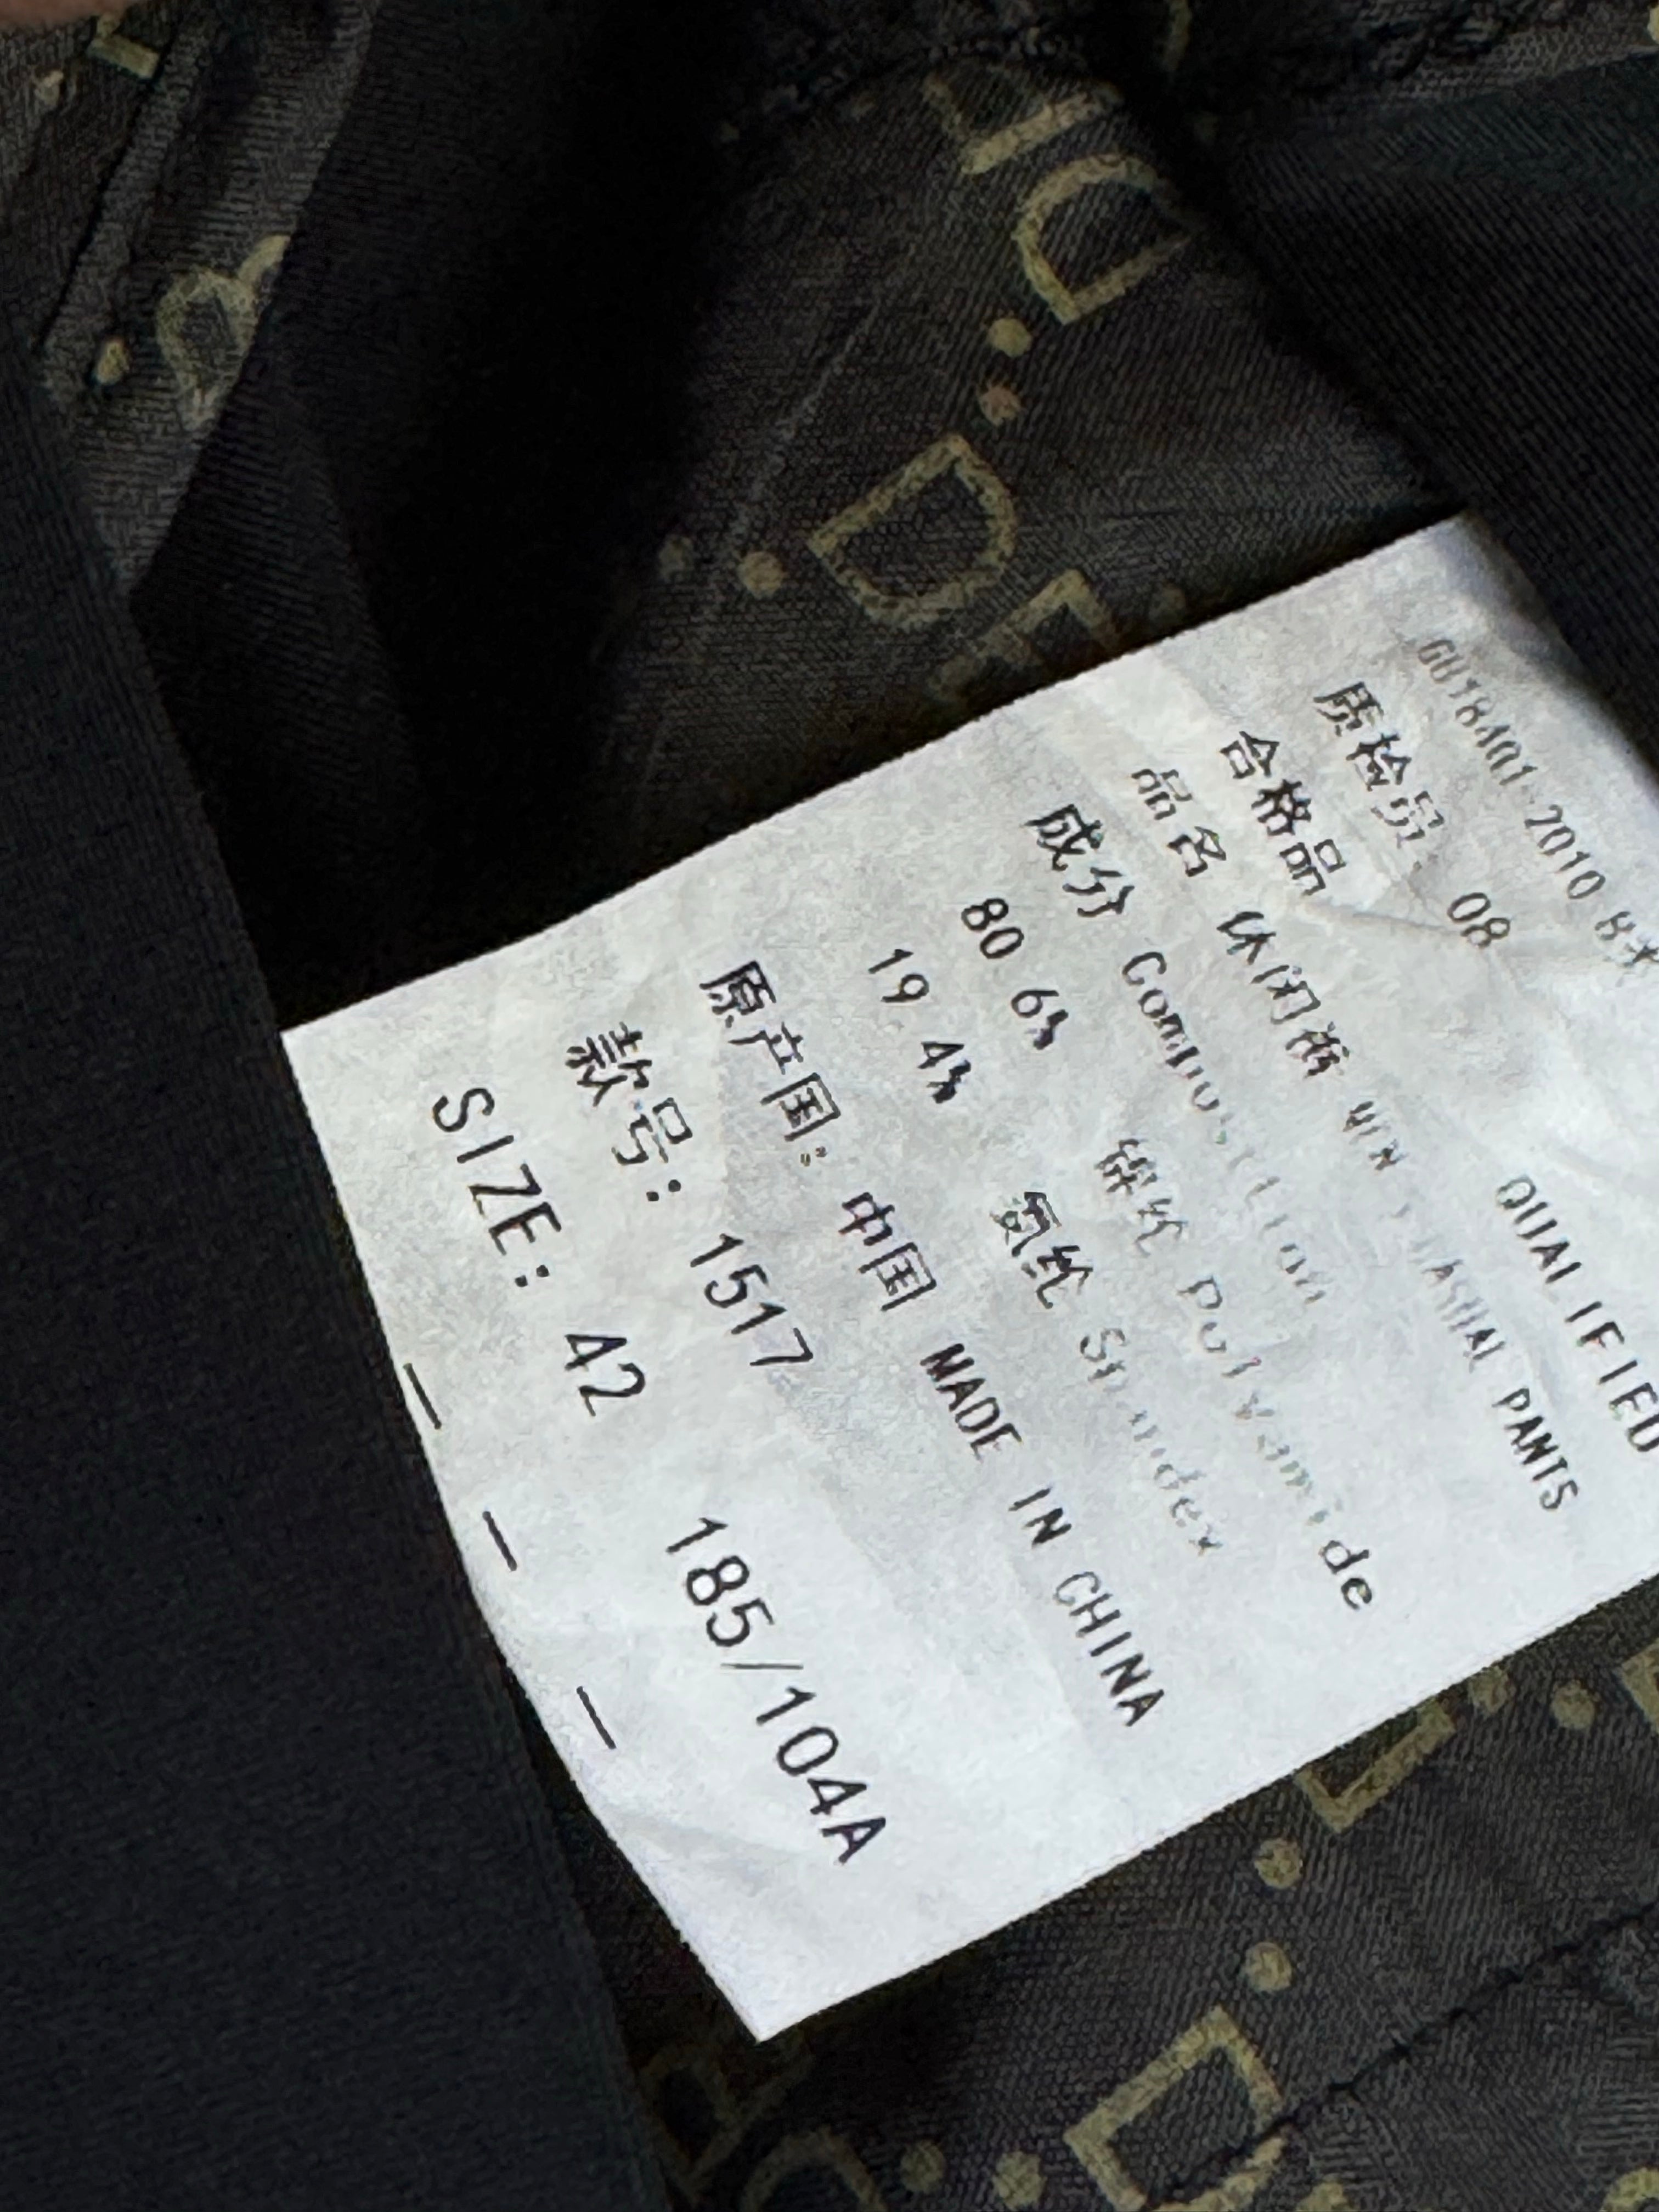 SIZE: 42 185/104A
款号: 1517
原产国: 中国 MADE IN CHINA
19 4% 氨纶 Spandex
80 6% 锦纶 Polyamide
成分 Composition
品名 休闲裤 MEN'S CASUAL PANTS
合格品 QUALIFIED
质检员: 08
GB18401-2010 B